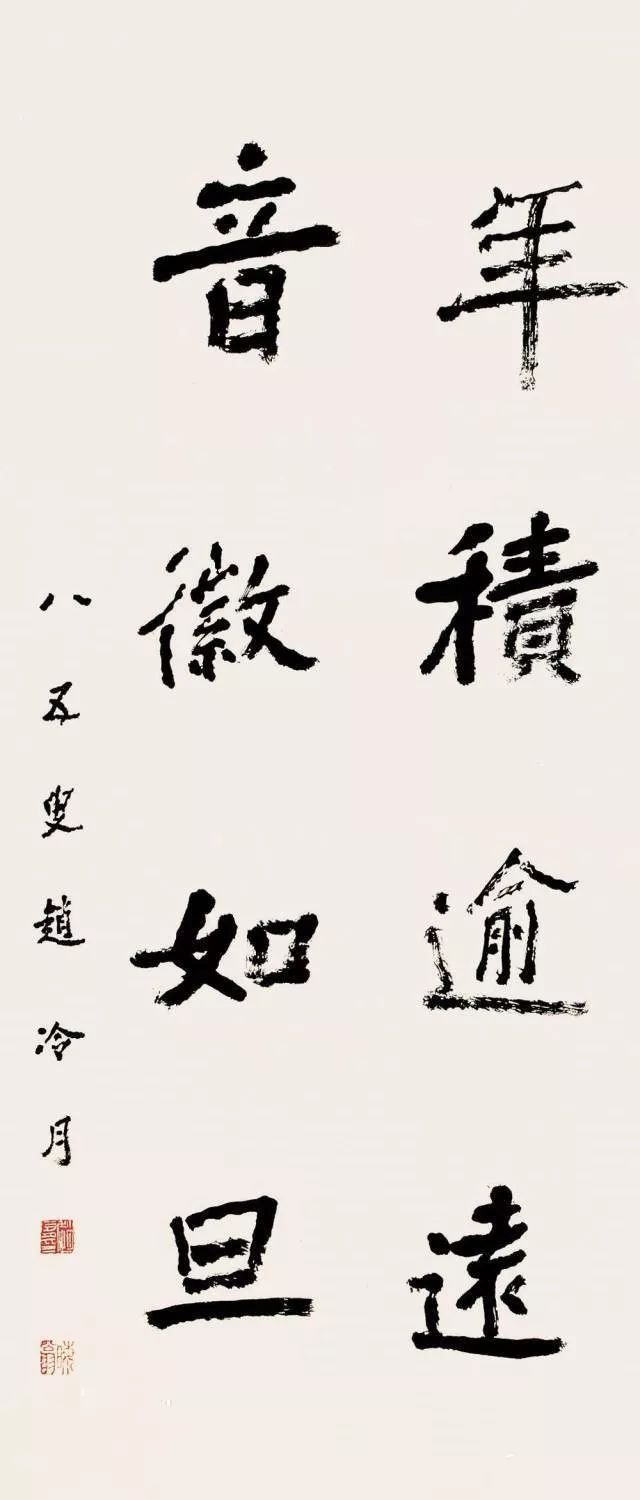 年積逾遠
音徽如旦
八五叟趙冷月